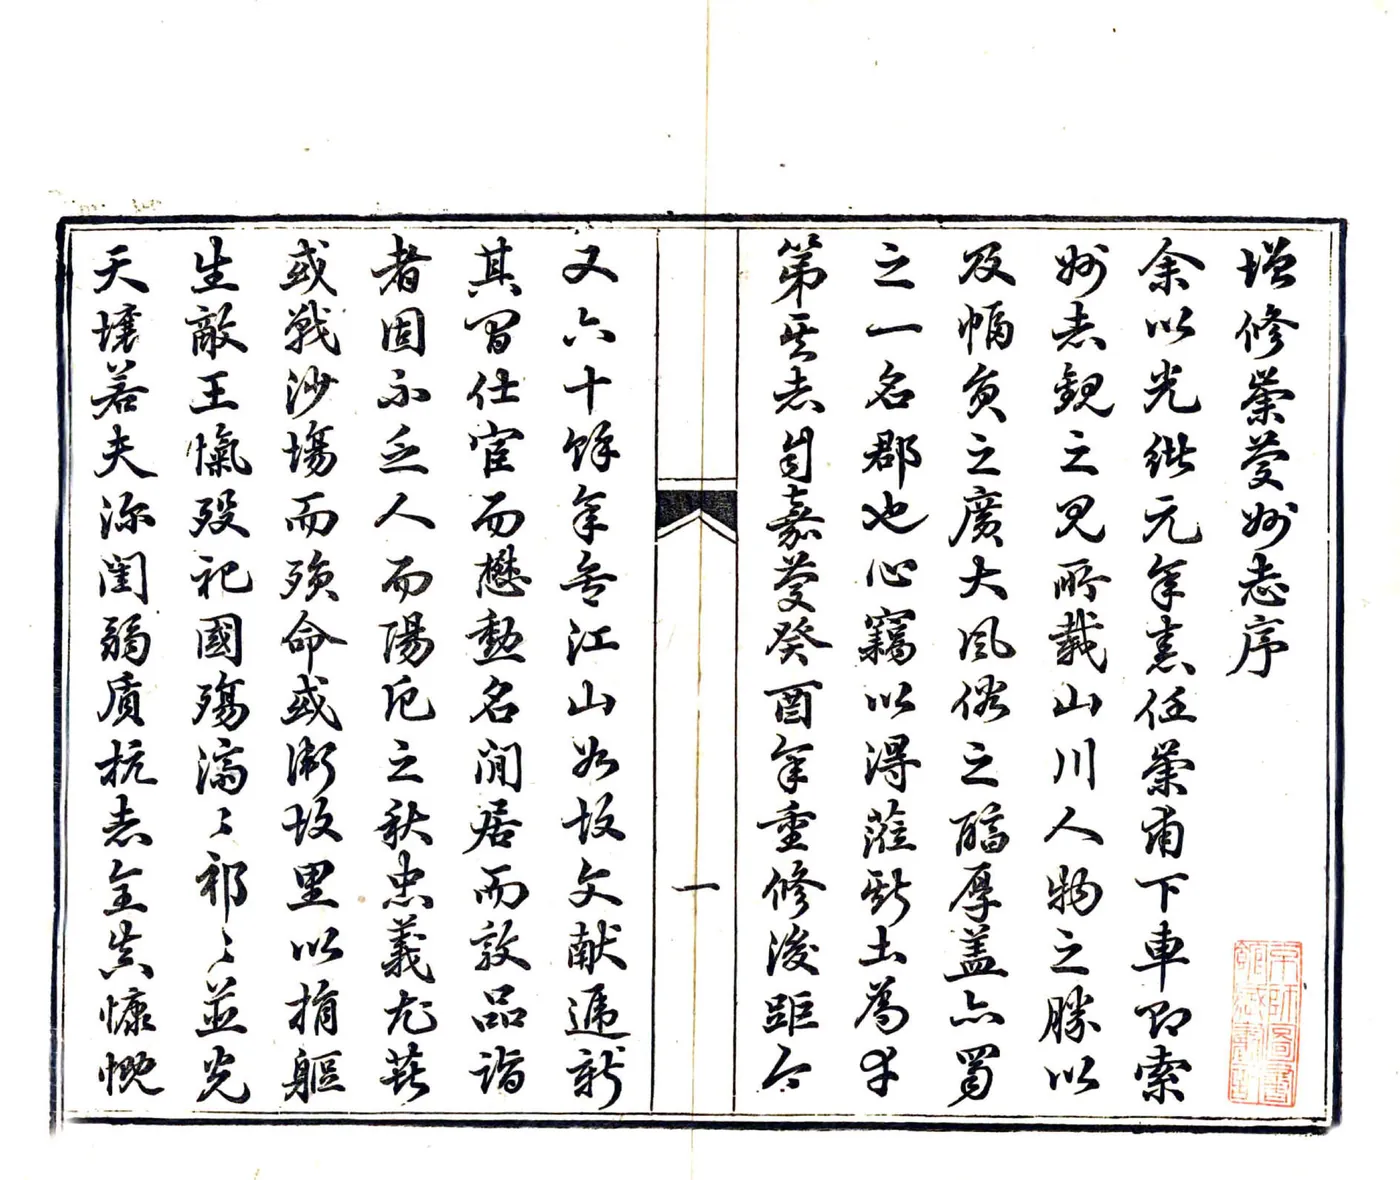 增修崇慶州志序
余以光緒元年任崇甫下車即索
州志觀之見所載山川人物之勝以
及幅員之廣大風俗之醇厚蓋亦蜀
之一名郡也心竊以得蒞斯土為幸
第其志自嘉慶癸酉年重修後距今
一
又六十餘年矣江山如故文獻遞新
其間仕宦而懋勳名閒居而敦品詣
者固不乏人而陽厄之秋忠義尤甚
或戰沙場而殞命或衛故里以捐軀
生敵王愾歿祀國殤濟〻祁〻並光
天壤若夫深閨弱質抗志全貞慷慨
京師圖書館藏書記